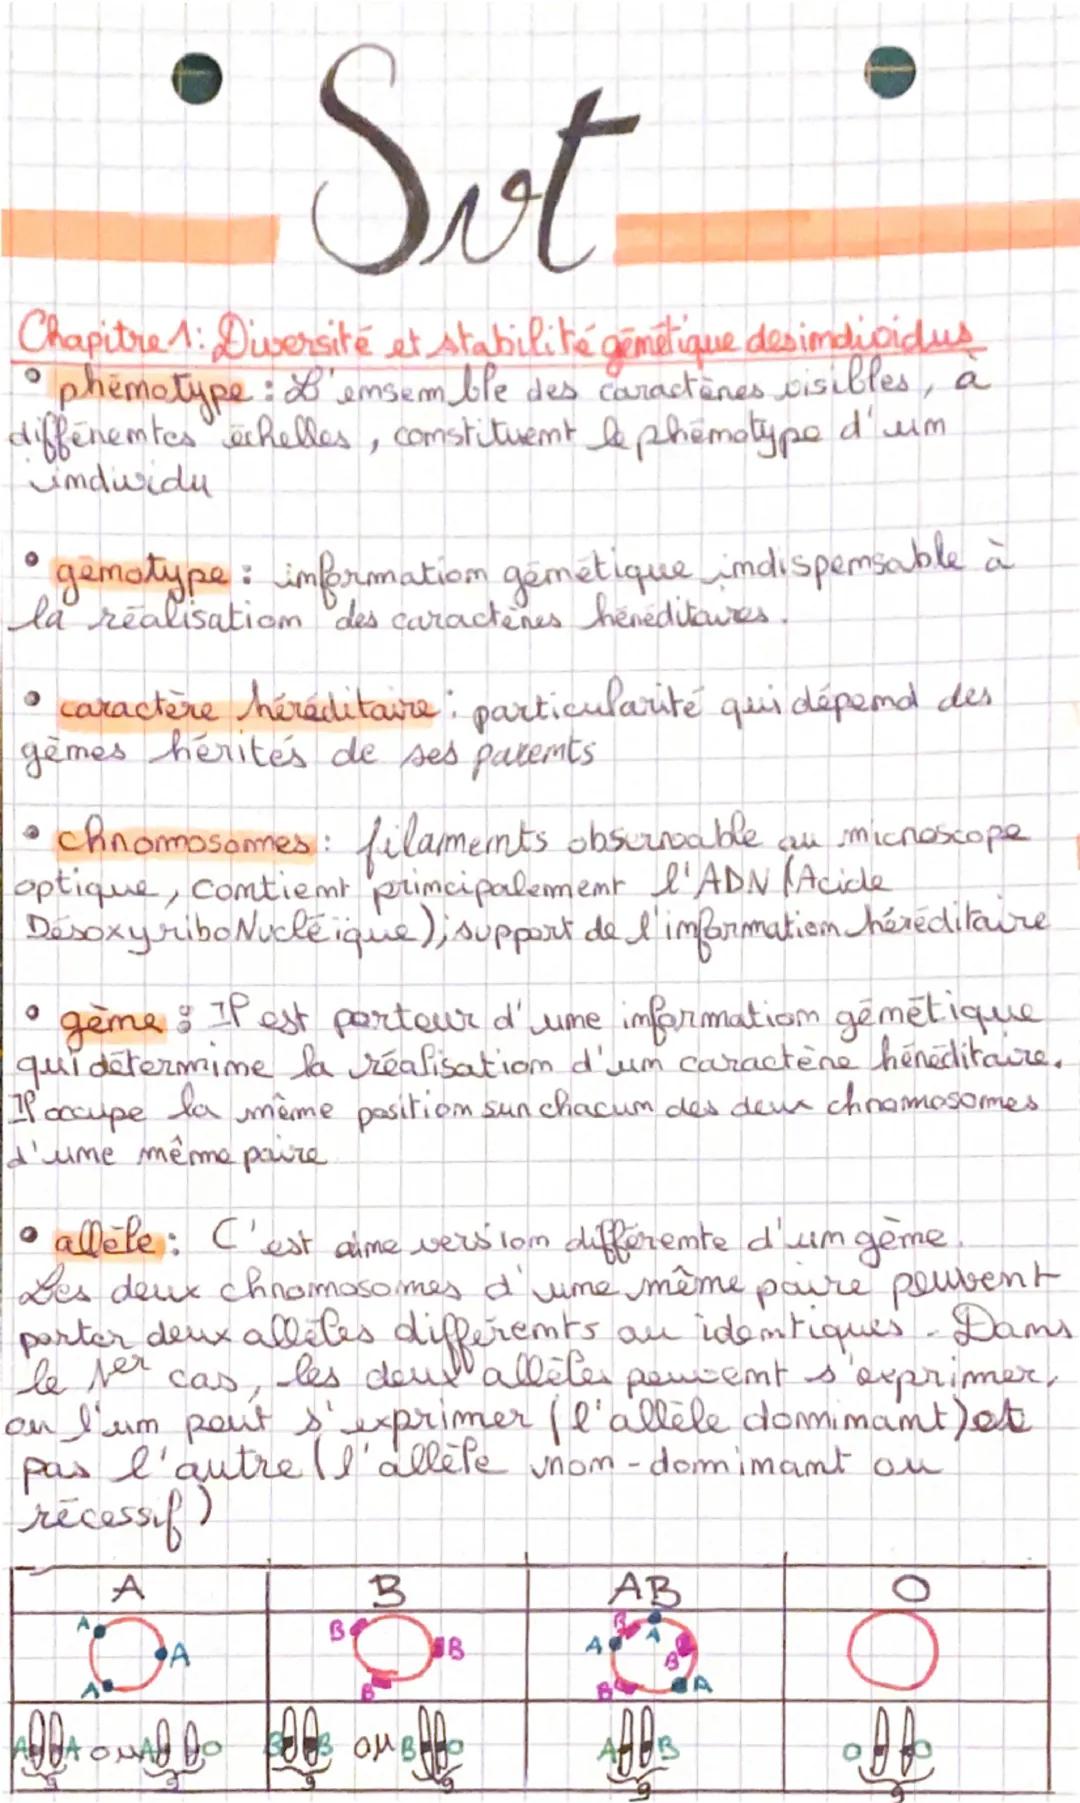 Svt
Chapitre 1: Diversité et stabilité génétique des individus
• phénotype : L'ensemble des caractères visibles, à
différentes échelles, constituent le phénotype d'un
individu
• génotype : information génétique indispensable à
la réalisation des caractères héréditaires.
• caractère héréditaire : particularité qui dépend des
gènes hérités de ses parents
• chromosomes : filaments observable au microscope
optique, contient principalement l'ADN (Acide
DésoxyriboNucléïque), support de l'information héréditaire
• gène : Il est porteur d'une information génétique
qui détermine la réalisation d'un caractère héréditaire.
Il occupe la même position sur chacun des deux chromosomes
d'une même paire
• allèle : C'est une version différente d'un gène.
Les deux chromosomes d'une même paire peuvent
porter deux allèles différents ou identiques. Dans
le 1er cas, les deux allèles peuvent s'exprimer,
ou l'un peut s'exprimer (l'allèle dominant) et
pas l'autre (l'allèle non-dominant ou
récessif)
A B AB O
A A A B B B A B A B B A
A A ou A O B B ou B O A B O O
g g g g g g